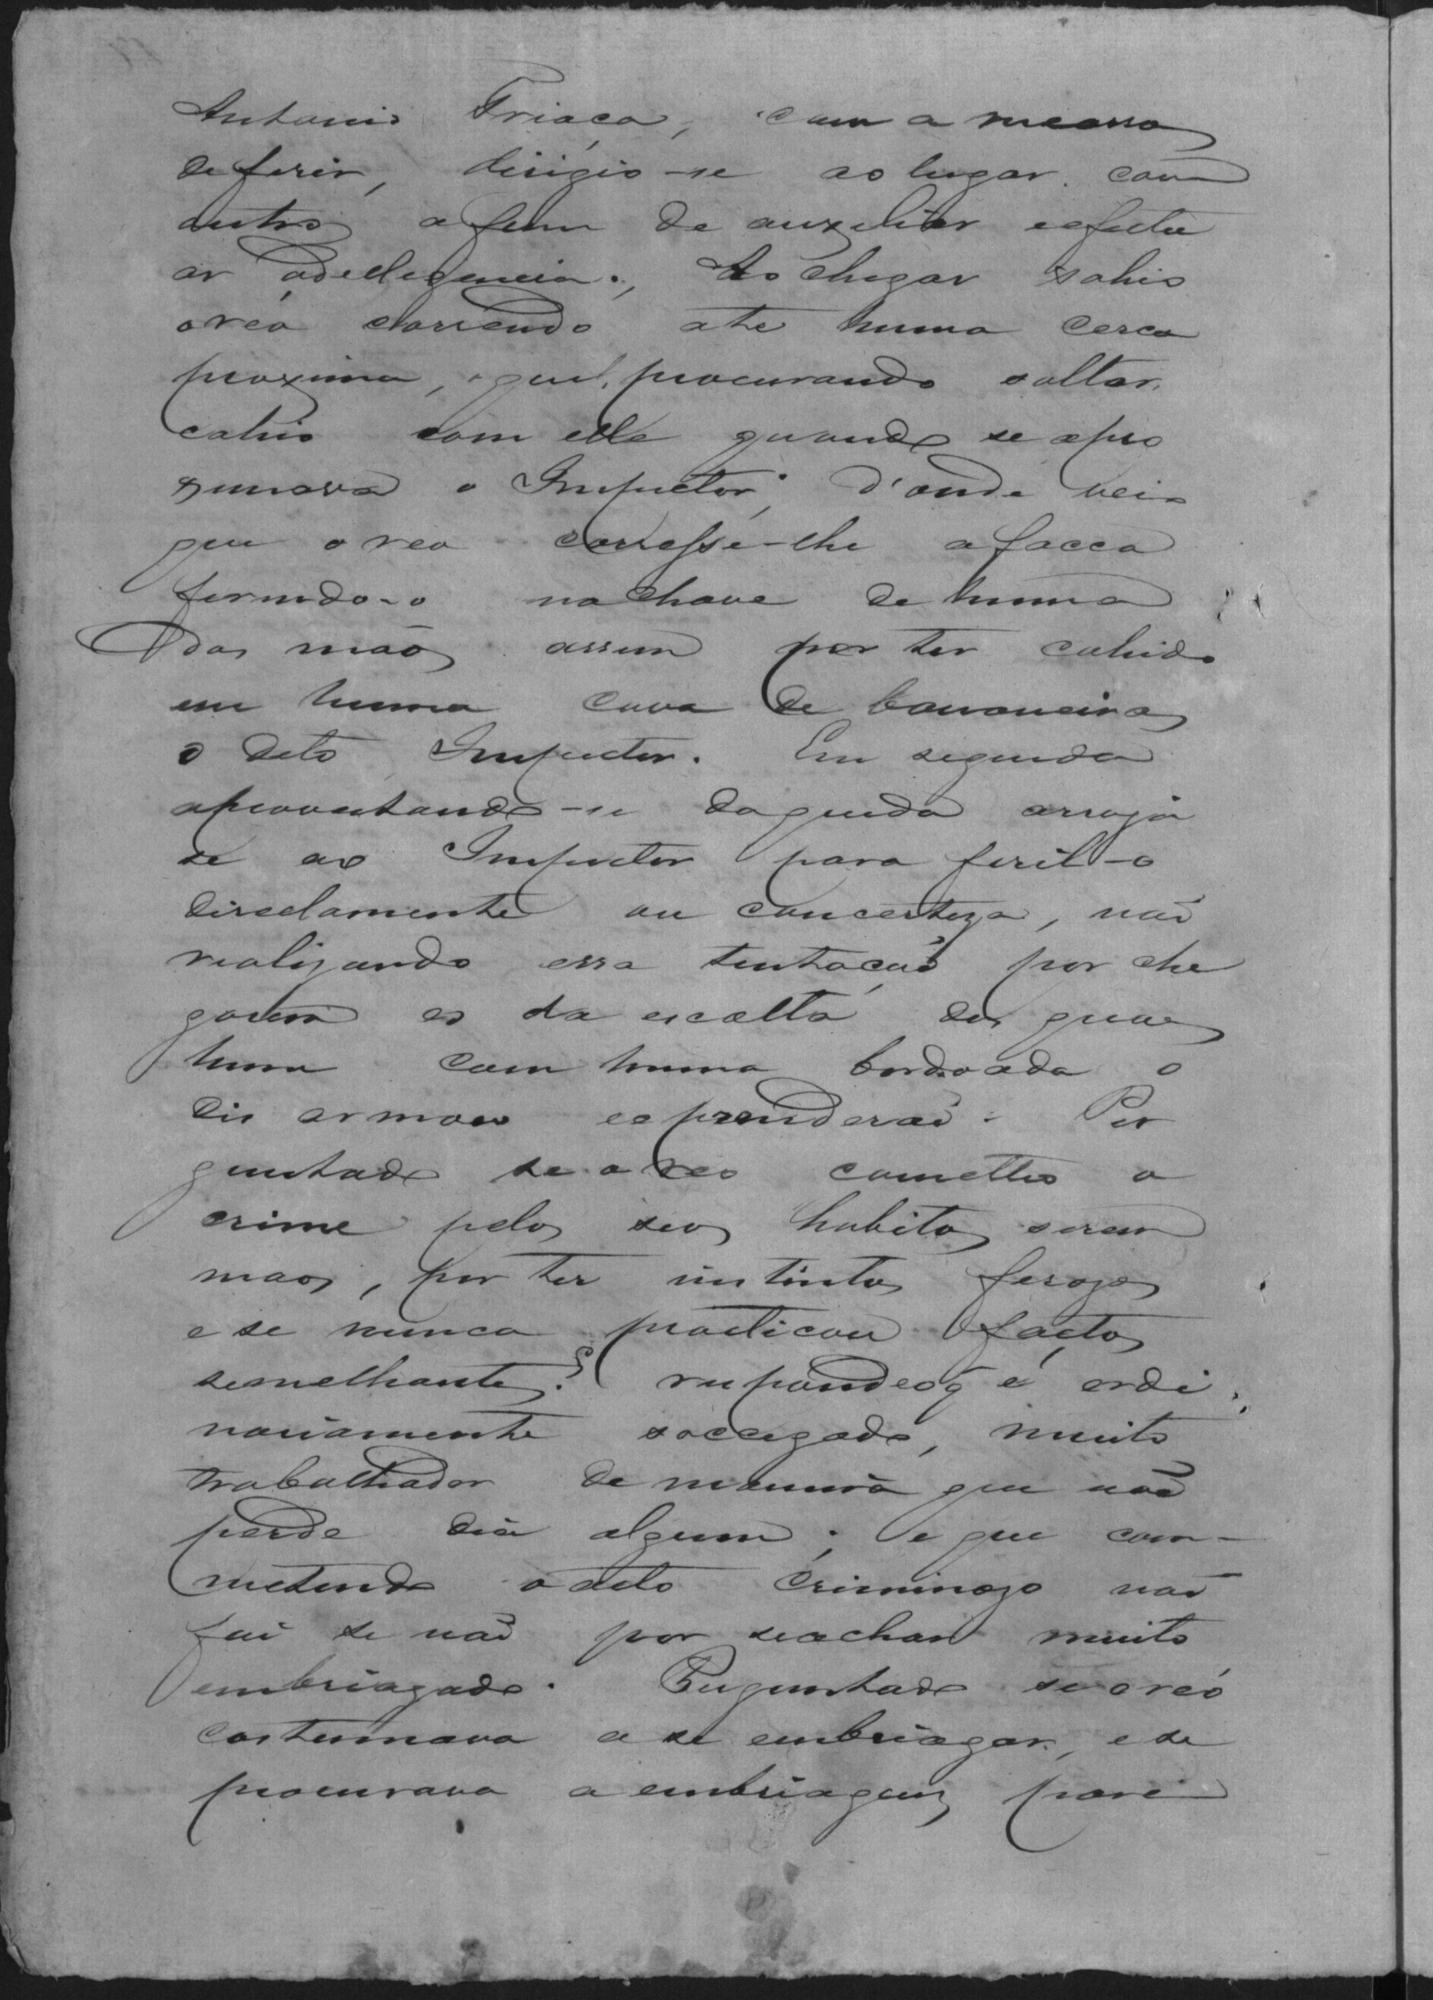 Antonio Friaça, com a meaça
de ferir, dirigio-se ao lugar com
outros afim de auxiliar e effectu
ar a deligencia; Ao chegar sahio
o reo correndo ate huma cerca
proxima, a qual, procurando saltar
cahio com ella quando se apro
ximava o Inspector; d'onde veio
que o reo corresse-lhe a facca
ferindo-o na chave de huma
das mãos assim por ter cahido
em huma cova de bananeiras
o dito Inspector. Em seguida
aproveitando-se da queda arroja
se ao Inspector para feril-o
directamente ou com certeza, não
realizando essa tentação por che
garem os da escolta dos quaes
hum com huma bordoada o
disarmou e o prenderaõ. Per
guntado se o reo cometteo o
crime pelos seos habitos serem
maos, por ter instintos ferozes
e se nunca practicou factos
semelhantes? respondeo q é ordi
nariamente soccegado, muito
trabalhador de maneira que não
perde dia algum; e que com-
metendo o acto criminozo não
foi se não por se achar muito
embriagado. Perguntado se o reo
costumava a se embriagar, e se
procurava a embriaguez para